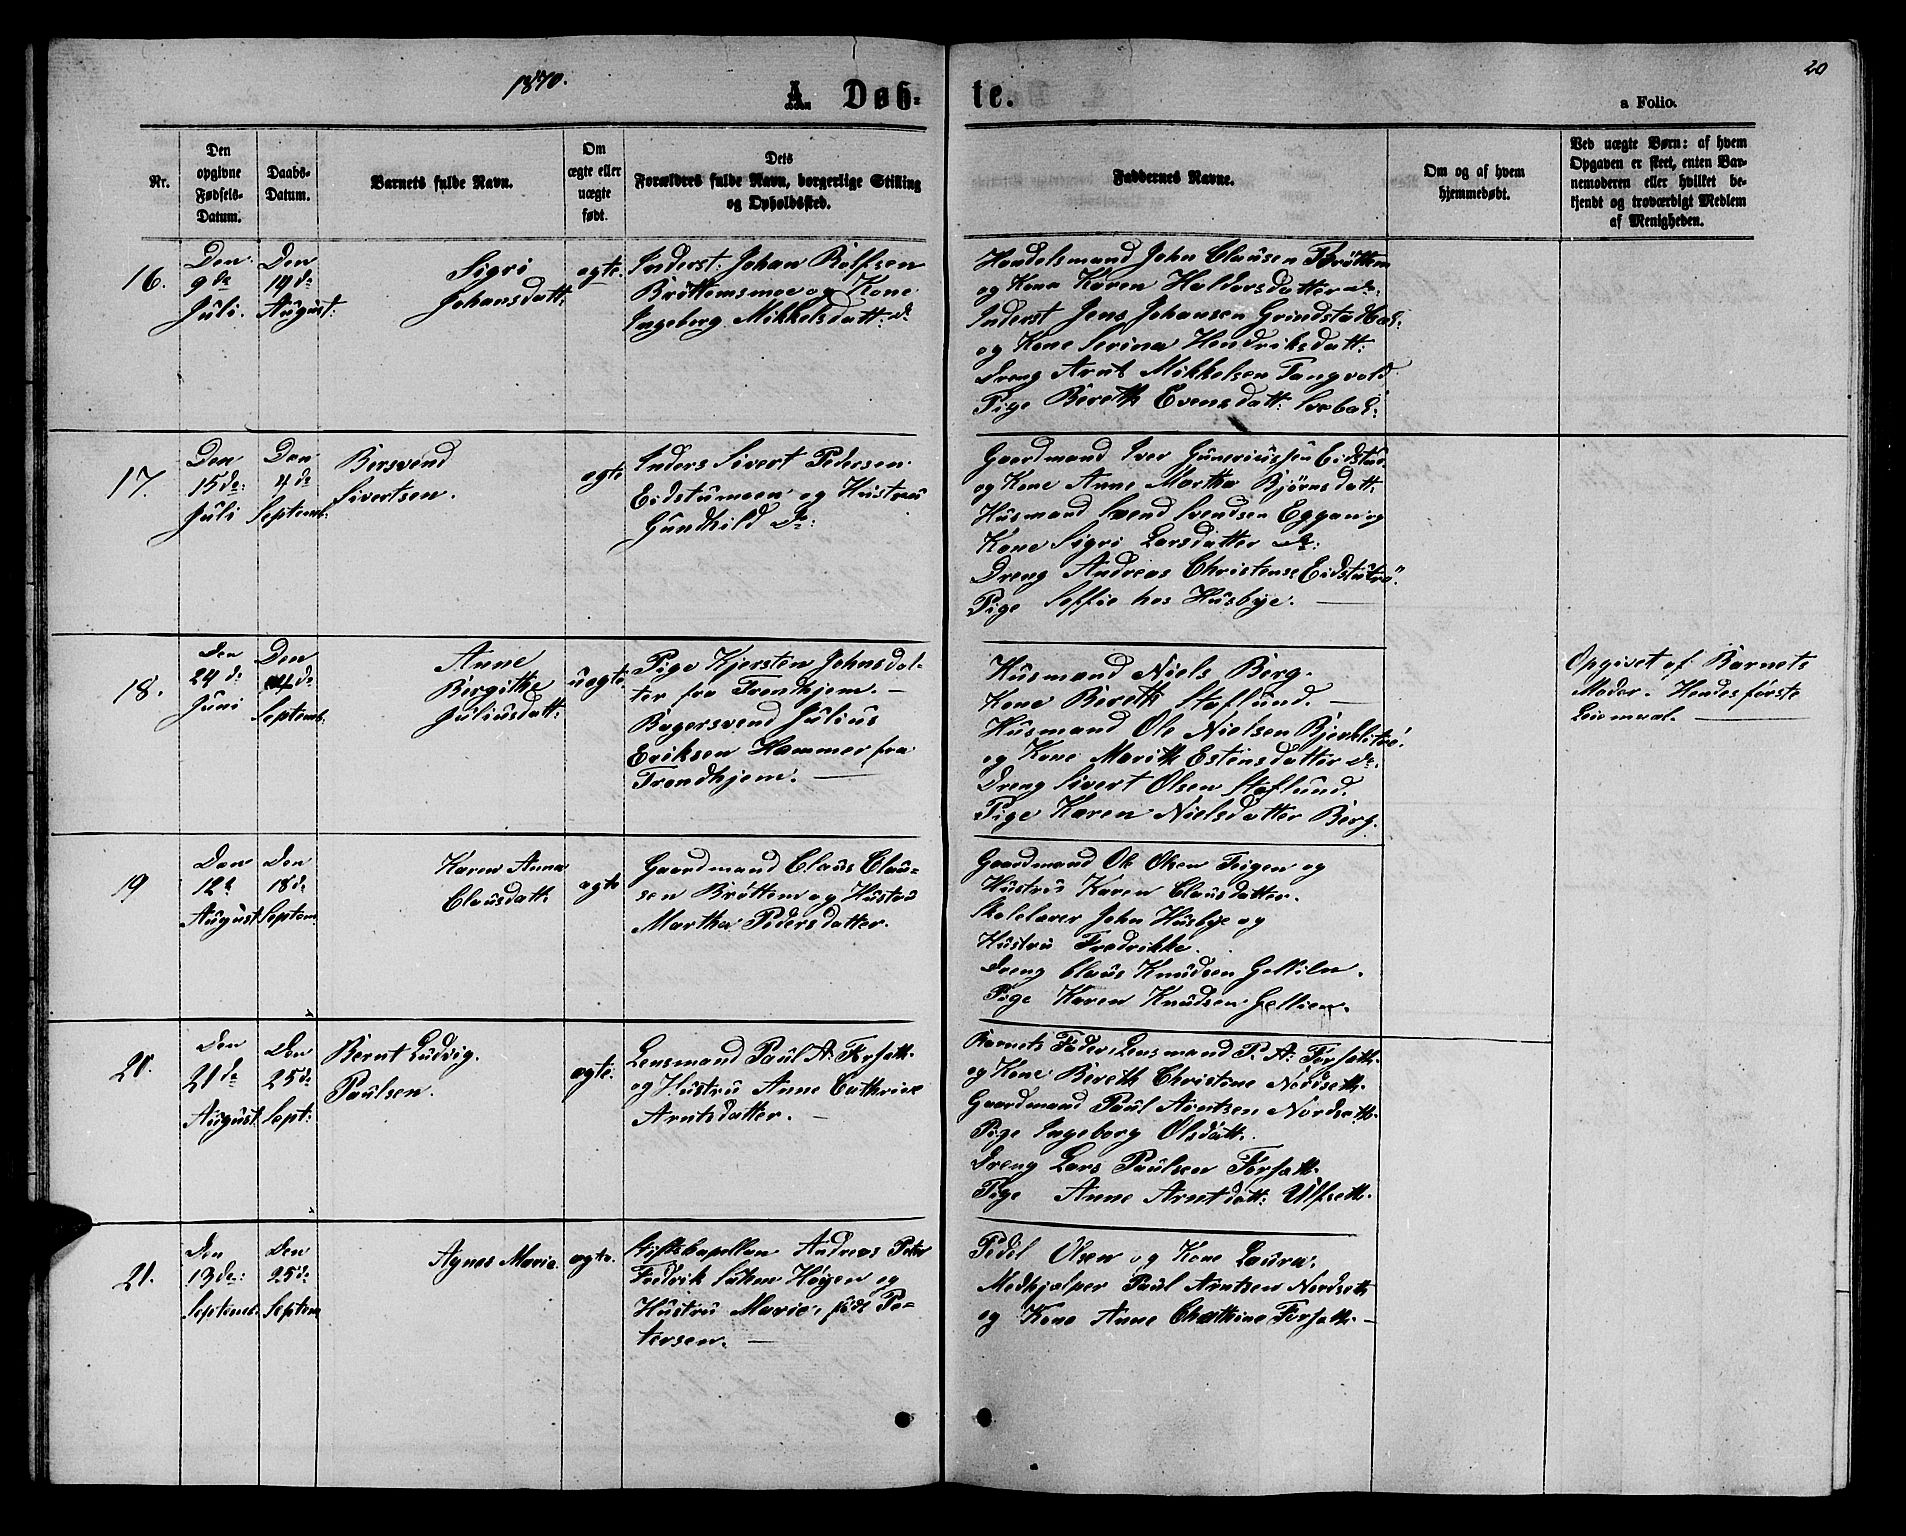 1870.
20
A. Døb-
te.
a Folio.
Nr.
Den
opgivne
Fødsels-
Datum.
Daabs-
Datum.
Barnets fulde Navn.
Om
ægte eller
uægte
født.
Dets
Forældres fulde Navn, borgerlige Stilling
og Opholdssted.
Faddernes Navne.
Om og af hvem
hjemmedøbt.
Ved uægte Børn: af hvem
Opgaven er skeet, enten Bar-
nemoderen eller hvilket be-
kjendt og troværdigt Medlem
af Menigheden.
16.
Den
9de
Juli.
Den
19de
August:
Sigri
Johansdatt:
ægte.
Inderst. Johan Rolfsen
Brøttemsmoe og Kone
Ingeborg Mikkelsdatt: do
Handelsmand John Clausen Brøttem
og Kone Karen Haldorsdatter do:
Inderst Jens Johansen Grindstad
og Kone Serina Hendriksdatt:
Dreng Arnt Mikkelsen Tangvold
Pige Bereth Evensdatt:
17.
Den
15de:
Juli
Den
4de
Septemb:
Bersvend
Sivertsen.
ægte
Inders Sivert Pedersen
Eidstumoen og Hustru
Gunhild do:
Gaardmand Iver Guneriussen Eidstu
og Kone Anne Martha Bjørnsdatt:
Husmand Svend Svendsen Eggan og
Kone Sigri Larsdatter do:
Dreng Andreas Christense Eidstutrø
Pige Soffie hos Husbye.
18.
Den
24de
Juni
Den
4de
Septemb:
Anne
Birgitte
Juliusdatt:
uægte.
Pige Kjersten Johnsdat-
ter fra Trondhjem. —
Bagersvend Julius
Eriksen Hammer fra
Trondhjem. —
Husmand Niels Berg.
Kone Bereth Stoflund. —
Husmand Ole Nielsen Bjerklitrø.
og Kone Marith Estensdatter do.
Dreng Sivert Olsen Stoflund.
Pige Karen Nielsdatter Berg.
Opgivet af Barnets
Moder. Hendes første
Leiermaal. —
19
Den
12te
August
Den
18de
Septem.
Karen Anna
Clausdatt.
ægte
Gaardmand Claus Clau-
sen Brøttem og Hustru
Martha Pedersdatter.
Gaardmand Ole Olsen Teigen og
Hustru Karen Clausdatter.
Skolelærer John Husbye og
Hustru Fredrikke.
Dreng Claus Knudsen
Pige Karen Knudsen
20.
Den
21de
August
Den
25de
Sept:
Bernt Ludvig.
Paulsen.
ægte.
Lensmand Paul A. Forseth.
og Hustru Anne Cathrine
Arntsdatter. —
Barnets Fader, Lensmand P. A: Forseth.
og Kone Bereth Christine Nordseth.
Gaardmand Paul Arntsen Nordseth.
Pige Ingeborg Olsdatt.
Dreng Lars Paulsen Forseth.
Pige Anne Arntdatt: Ulfseth.
21.
Den
13de:
Septemb.
Den
25de
Septem
Agnes Marie.
ægte.
Stiftskapellan Andreas Peter
Fredrik Høyen og
Hustru Marie, født Pe-
tersen. —
Pedel Olsen og Kone Laura.
Medhjælper Paul Arntsen Nordseth
og Kone Anne Chathrine Forseth. —